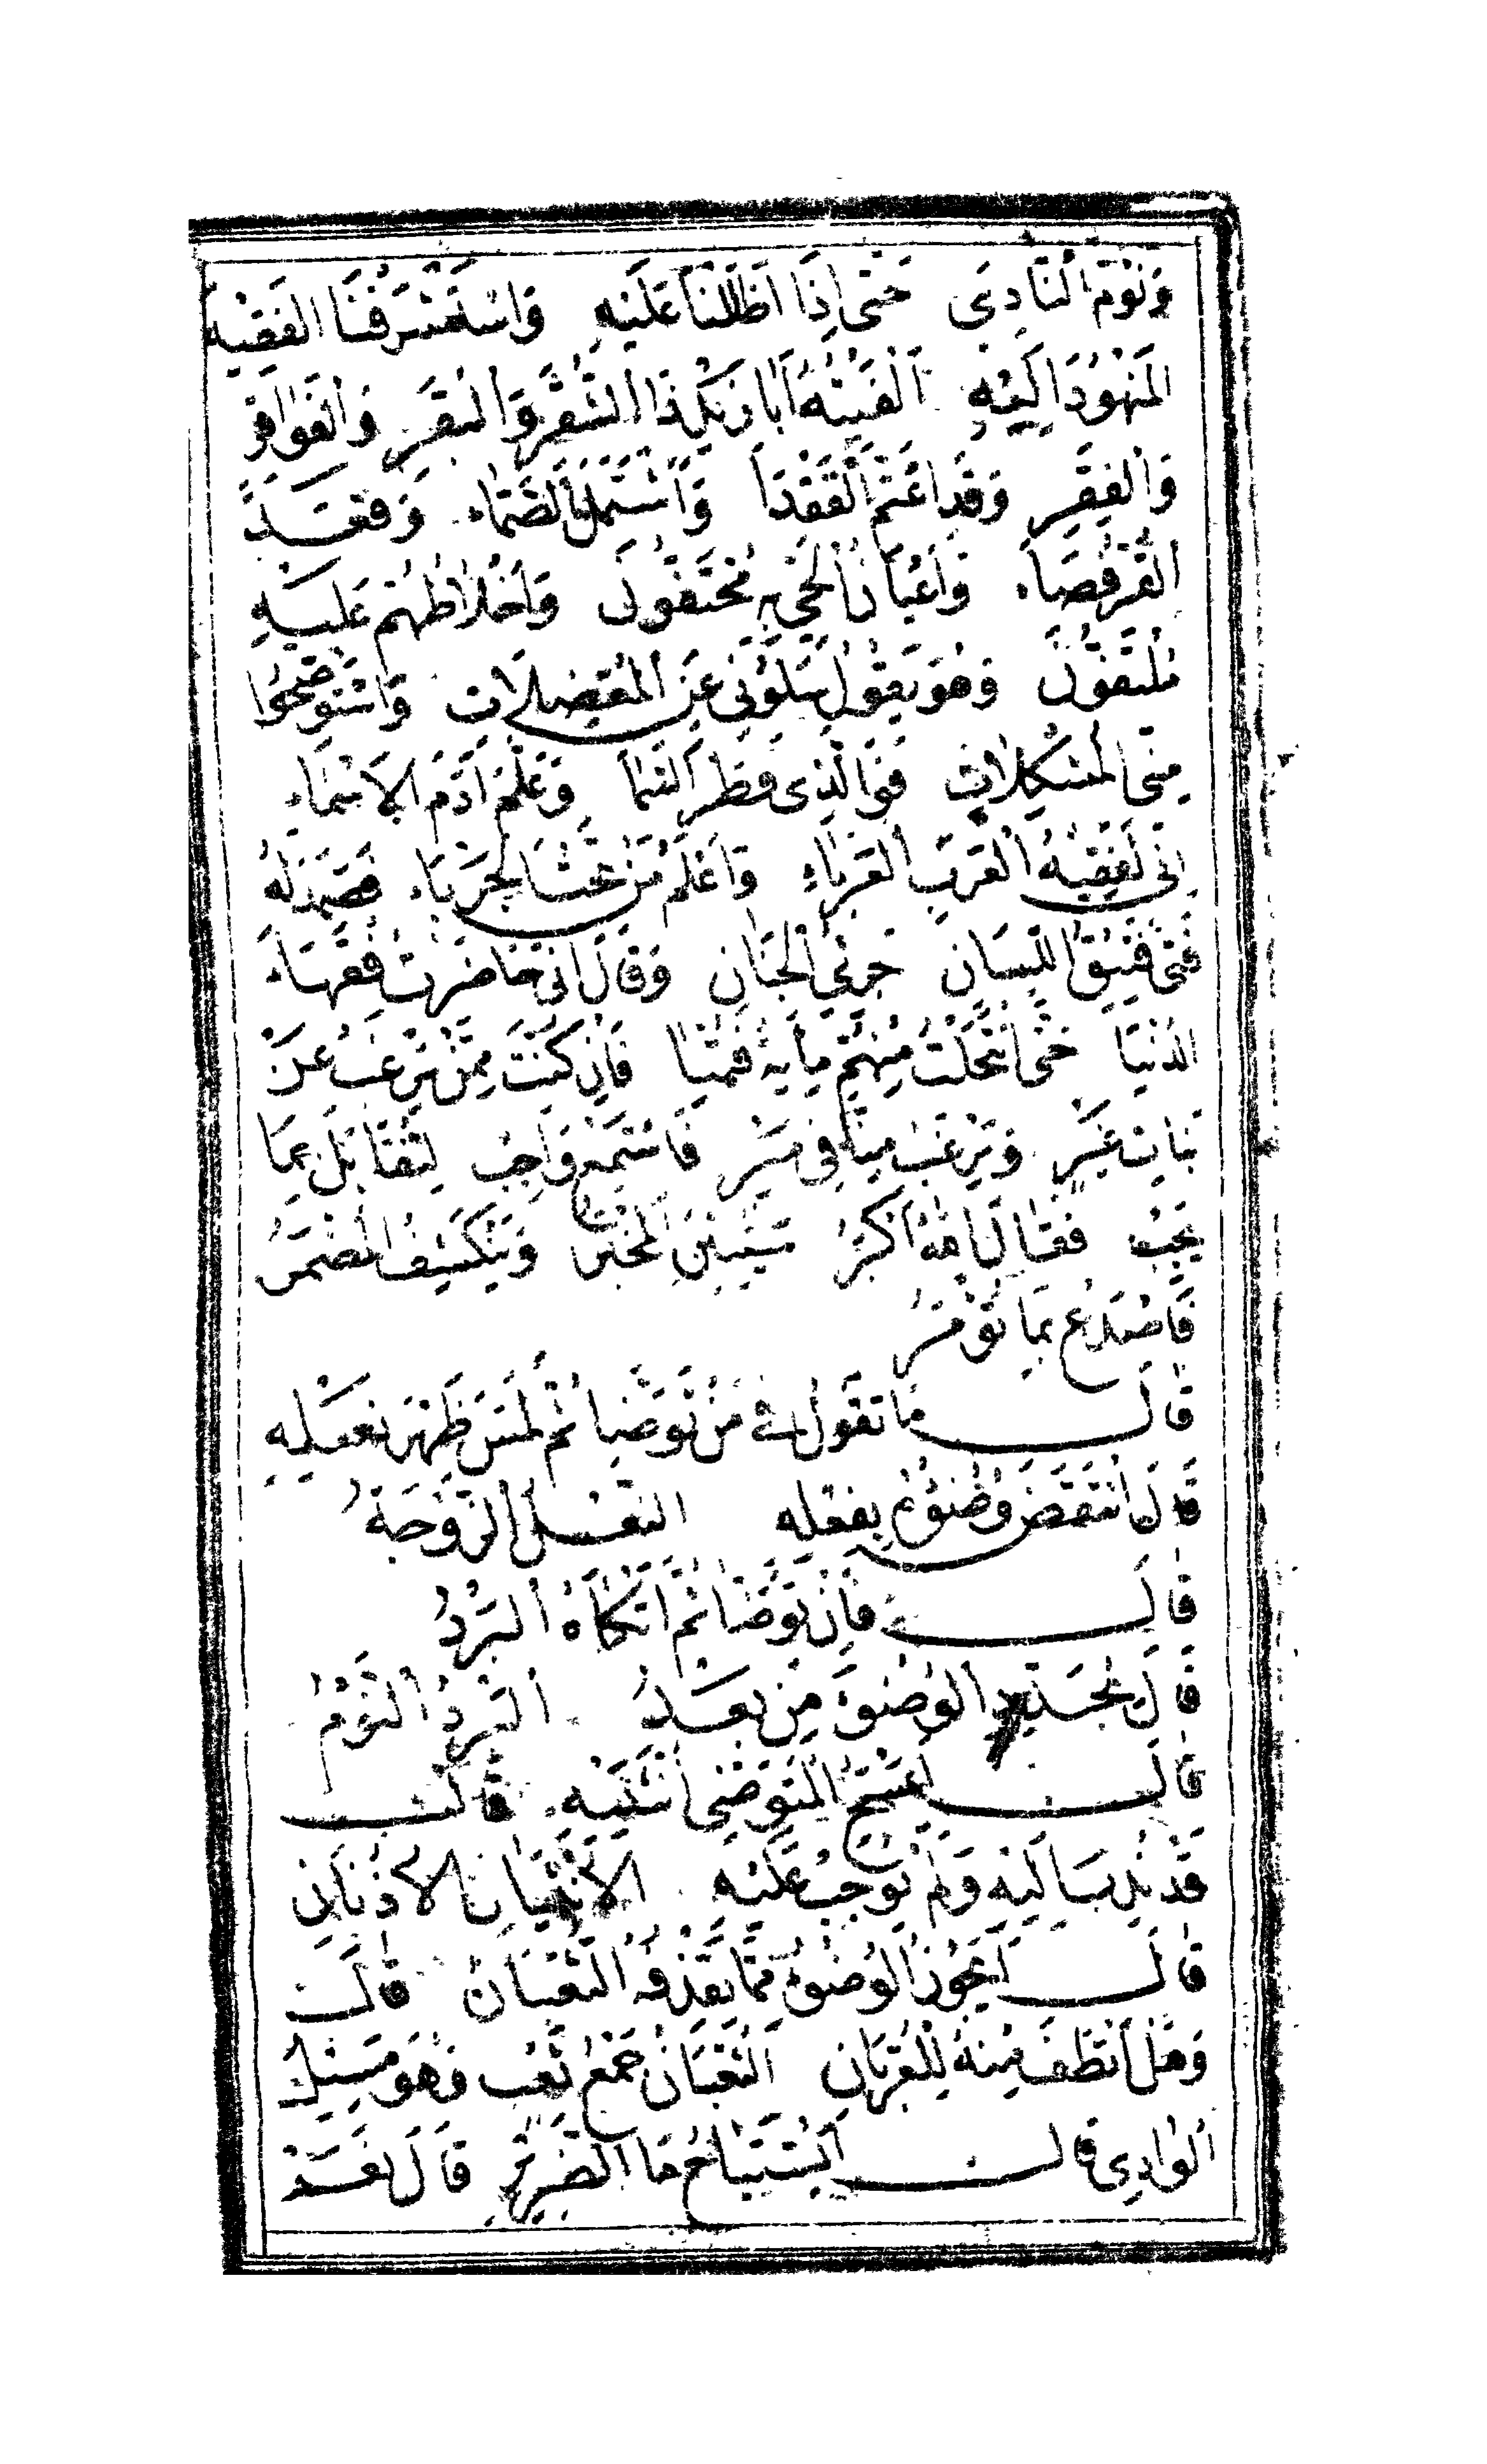 وَنَؤُمُّ النَّادِيَ حَتَّى إِذَا أَظْلَلْنَا عَلَيْهِ وَاسْتَشْرَفْنَا الفَقِيهَ
المَنْهُودَ إِلَيْهِ أَلْفَيْتُهُ أَبَا زَيْدٍ ذَا الشُّقَرِ وَالبُقَرِ وَالفَوَاقِرِ
وَالفِقَرِ وَقَدِ اعْتَمَّ القَفْدَا وَاشْتَمَلَ الصَّمَّاء وَقَعَدَ
القُرْفُصَاء وَأَعْيَانُ الحَيِّ بِهِ مُحْتَفُّونَ وَأَخْلَاطُهُمْ عَلَيْهِ
مُلْتَفُّونَ وَهُوَ يَقُولُ سَلُونِي عَنِ المُعْضِلَاتِ وَاسْتَوْضِحُوا
مِنِّي المُشْكِلَاتِ فَوَالَّذِي فَطَرَ السَّمَا وَعَلَّمَ آدَمَ الأَسْمَاءَ
إِنِّي لَفَقِيهُ العَرَبِ العَرْبَاءِ وَأَعْلَمُ مَنْ تَحْتَ الجَرْبَاء فَصَمَدَ لَهُ
فَتًى فَتِيقُ اللِّسَانِ جَرِيُّ الجَنَانِ وَقَالَ إِنِّي حَاضَرْتُ فُقَهَاءَ
الدُّنْيَا حَتَّى انْتَخَلْتُ مِنْهُمْ مِايَةَ فُتْيَا فَإِنْ كُنْتَ مِمَّنْ يَرْغَبُ عَنْ
بَنَاتِ غَيْرٍ وَيَرْغَبُ مِنَّا فِي مَيْرٍ فَاسْتَمِعْ وَأَجِبْ لِتُقَابَلَ بِمَا
يَجِبُ فَقَالَ اللهُ أَكْبَرُ سَيَبِينُ المَخْبَرُ وَيَنْكَشِفُ المُضْمَرُ
فَاصْدَعْ بِمَا تُؤْمَرُ
قَالَ مَا تَقُولُ فِي مَنْ تَوَضَّأَ ثُمَّ لَمَسَ ظَهْرَ نَعْلِهِ
قَالَ انْتَقَضَ وُضُوءُهُ بِفِعْلِهِ النَّعْلُ الزَّوْجَةُ
قَالَ فَإِنْ تَوَضَّأَ ثُمَّ أَتْكَأَهُ البَرْدُ
قَالَ يُجَدِّدُ الوُضُوءَ مِنْ بَعْدُ البَرْدُ النَّوْمُ
قَالَ أَيَمْسَحُ المُتَوَضِّي أُنْثَيَيْهِ قَالَ
قَدْ نُدِبَ إِلَيْهِ وَلَمْ يُوجَبْ عَلَيْهِ الأُنْثَيَانِ الأُذُنَانِ
قَالَ أَيَجُوزُ الوُضُوءُ مِمَّا يَقْذِفُهُ الثُّعْبَانُ قَالَ
وَهَلْ أَنْظَفُ مِنْهُ لِلْعُرْبَانِ الثُّعْبَانُ جَمْعُ ثَعْبٍ وَهُوَ مَسِيلُ
الوَادِي قَالَ أَيُسْتَبَاحُ مَا الضَّرِيرِ قَالَ نَعَمْ